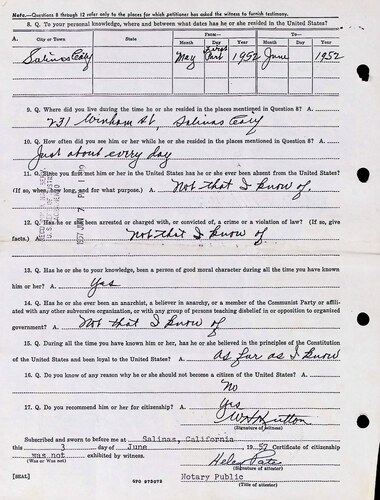 Note.—Questions 8 through 12 refer only to the places for which petitioner has asked the witness to furnish testimony.
8. Q. To your personal knowledge, where and between what dates has he or she resided in the United States?
City or Town State From— To—
Month Day Year Month Day Year
A. Salinas Calif May First Part 1952 June 1952
9. Q. Where did you live during the time he or she resided in the places mentioned in Question 8? A.
231 St, Salinas Calif
10. Q. How often did you see him or her while he or she resided in the places mentioned in Question 8? A.
Just about every day
11. Q. Since you first met him or her in the United States has he or she ever been absent from the United States?
(If so, when, how long, and for what purpose.) A. Not that I know of.
12. Q. Has he or she been arrested or charged with, or convicted of, a crime or a violation of law? (If so, give
facts.) A. Not that I know of
13. Q. Has he or she to your knowledge, been a person of good moral character during all the time you have known
him or her? A. Yes
14. Q. Has he or she ever been an anarchist, a believer in anarchy, or a member of the Communist Party or affili-
ated with any other subversive organization, or with any group of persons teaching disbelief in or opposition to organized
government? A. Not that I know of
15. Q. During all the time you have known him or her, has he or she believed in the principles of the Constitution
of the United States and been loyal to the United States? A. As far as I know
16. Q. Do you know of any reason why he or she should not become a citizen of the United States? A.
No
17. Q. Do you recommend him or her for citizenship? A. Yes
(Signature of witness)
Subscribed and sworn to before me at Salinas, California
this 3 day of June, 1957 Certificate of citizenship
was not exhibited by witness.
(Was or Was not)
Helen Pate
(Signature of attestor)
[SEAL] Notary Public
(Title of attestor)